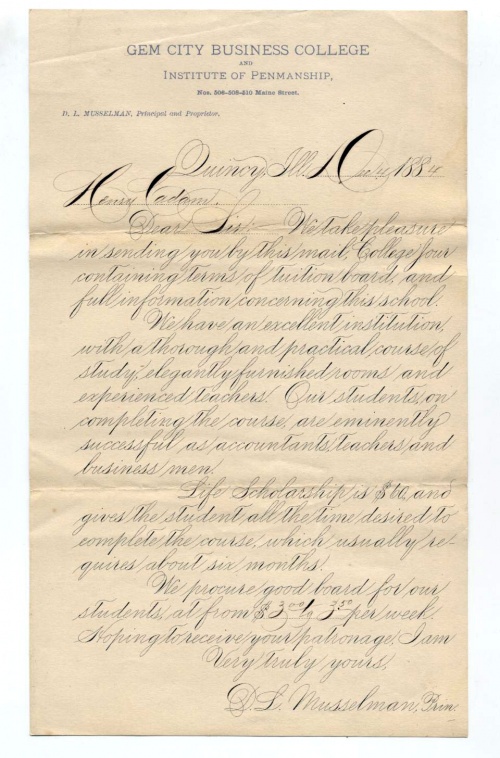 GEM CITY BUSINESS COLLEGE
AND
INSTITUTE OF PENMANSHIP,
Nos. 506-508-510 Maine Street.
D. L. MUSSELMAN, Principal and Proprietor.
Quincy, Ill. 1884
Henry Cadam.
Dear Sir:— We take pleasure
in sending you by this mail, College Jour
containing terms of tuition, board, and
full information concerning this school.
We have an excellent institution,
with a thorough and practical course of
study, elegantly furnished rooms and
experienced teachers. Our students, on
completing the course, are eminently
successful as accountants, teachers and
business men.
Life Scholarship is $60, and
gives the student all the time desired to
complete the course, which usually re-
quires about six months.
We procure good board for our
students, at from $3.00 to 3.50 per week.
Hoping to receive your patronage, I am
Very truly yours,
D. L. Musselman, Prin.